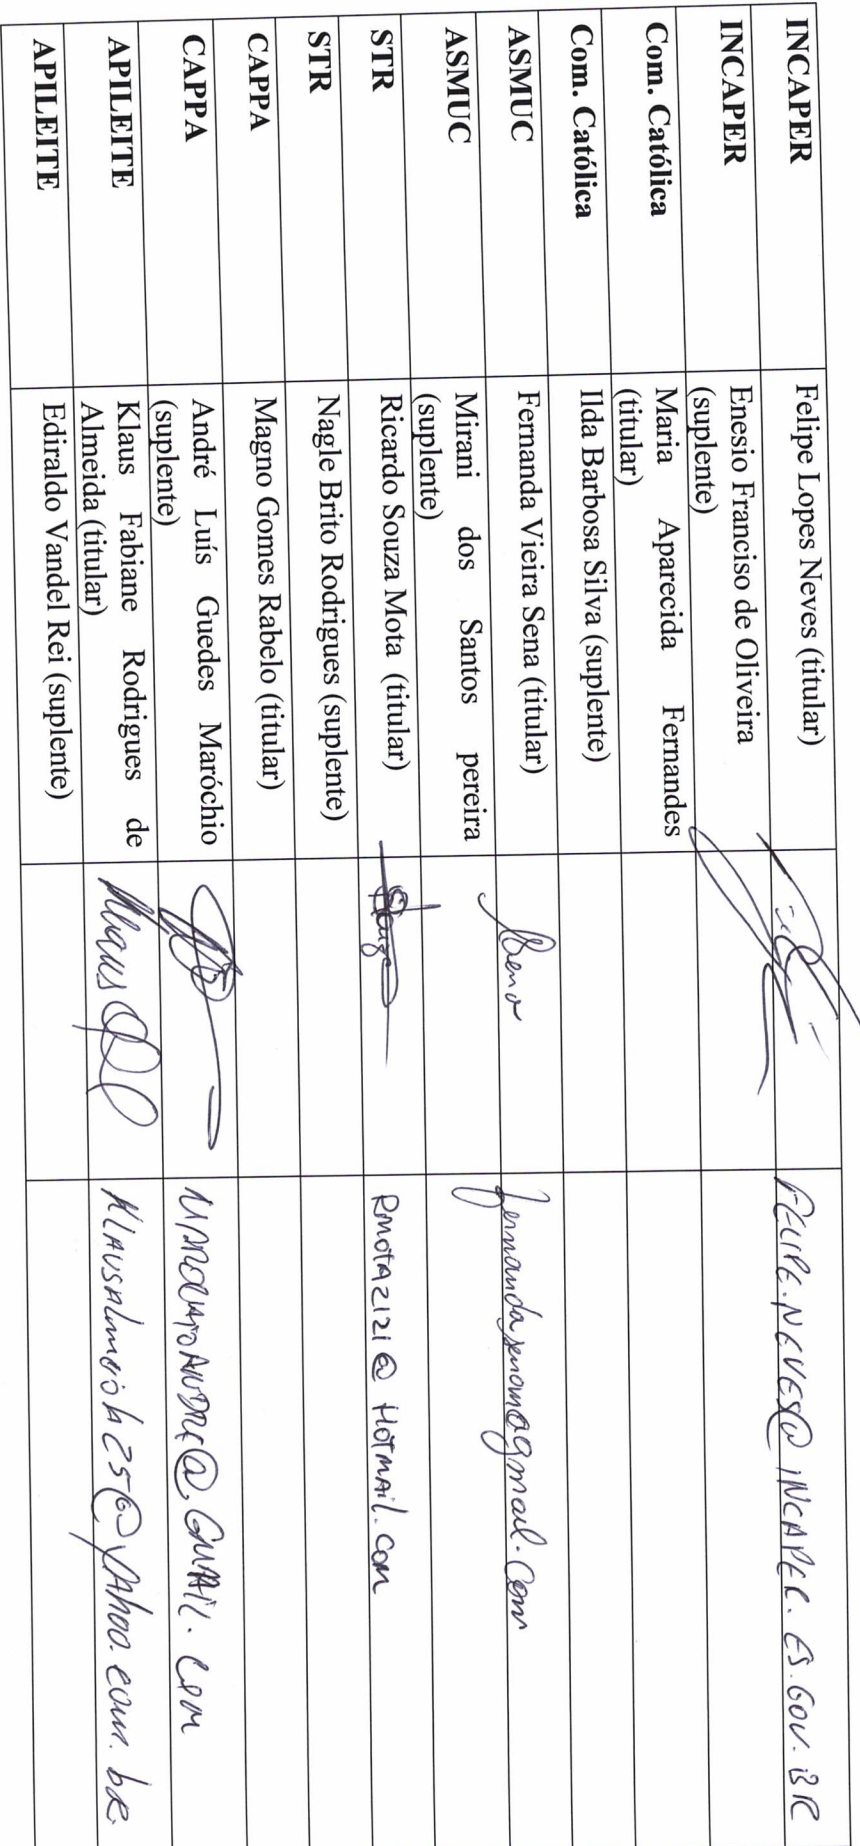 INCAPER Felipe Lopes Neves (titular) FELIPE.NEVES@INCAPER.ES.GOV.BR
INCAPER Enesio Franciso de Oliveira
(suplente)
Com. Católica Maria Aparecida Fernandes
(titular)
Com. Católica Ilda Barbosa Silva (suplente)
ASMUC Fernanda Vieira Sena (titular) Sena
ASMUC Mirani dos Santos pereira
(suplente)
STR Ricardo Souza Mota (titular) Rmotaz121@Hotmail.com
STR Nagle Brito Rodrigues (suplente)
CAPPA Magno Gomes Rabelo (titular)
CAPPA André Luís Guedes Maróchio
(suplente)
APILEITE Klaus Fabiane Rodrigues de
Almeida (titular) Klaus Klausalmeida25@yahoo.com.br.
APILEITE Ediraldo Vandel Rei (suplente)